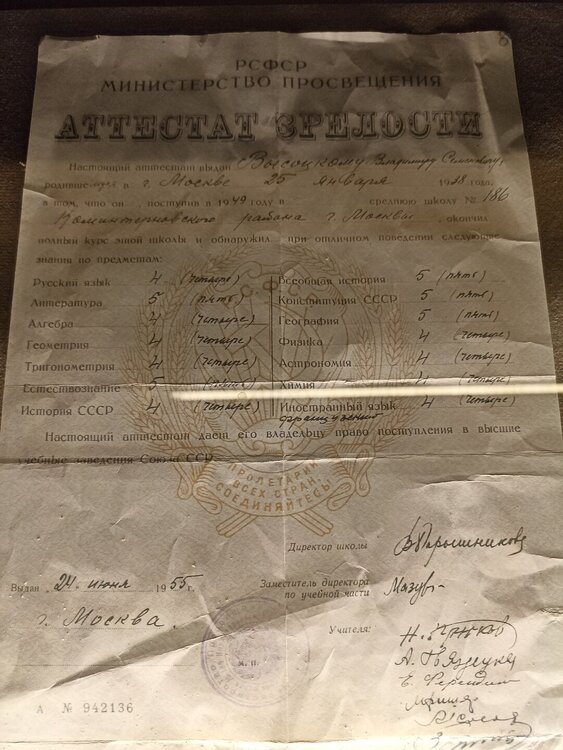 РСФСР
МИНИСТЕРСТВО ПРОСВЕЩЕНИЯ
АТТЕСТАТ ЗРЕЛОСТИ
Настоящий аттестат выдан Высоцкому Владимиру Семеновичу,
родившемуся в г. Москве 25 января 1938 года,
в том, что он, поступив в 1949 году в среднюю школу № 186
Коминтерновского района г. Москвы, окончил
полный курс этой школы и обнаружил при отличном поведении следующие
знания по предметам:
Русский язык 4 (четыре) Всеобщая история 5 (пять)
Литература 5 (пять) Конституция СССР 5 (пять)
Алгебра 4 (четыре) География 5 (пять)
Геометрия 4 (четыре) Физика 4 (четыре)
Тригонометрия 4 (четыре) Астрономия 4 (четыре)
Естествознание 5 (пять) Химия 4 (четыре)
История СССР 4 (четыре) Иностранный язык 4 (четыре)
французский
Настоящий аттестат дает его владельцу право поступления в высшие
учебные заведения Союза ССР.
ПРОЛЕТАРИИ
ВСЕХ СТРАН,
СОЕДИНЯЙТЕСЬ!
Директор школы
Выдан 24 июня 1955 г. Заместитель директора
по учебной части Мазур
г. Москва. Учителя:
М. П.
А № 942136